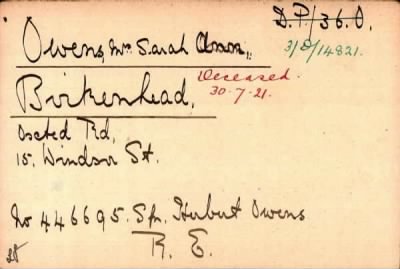 D.P/36.O.
Owens, Mrs Sarah Ann,
3/D/14821.
Deceased.
30-7-21.
Birkenhead,
Rd,
15, Windsor St.
No 446695. Spr. Hubert Owens
R. E.